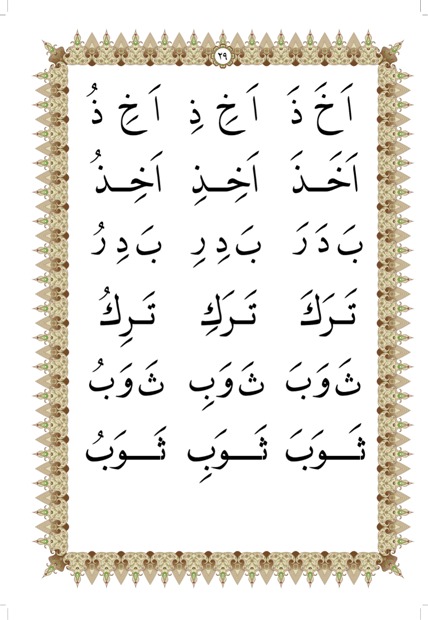 ٢٩
اَ خَ ذَ اَ خِ ذِ اَ خِ ذُ
اَخَــذَ اَخِــذِ اَخِــذُ
بَ دَ رَ بَ دِ رِ بَ دِ رُ
تَـرَكَ تَـرَكِ تَـرِكُ
ثَ وَ بَ ثَ وَ بِ ثَ وَ بُ
ثَــوَبَ ثَــوَبِ ثَــوَبُ